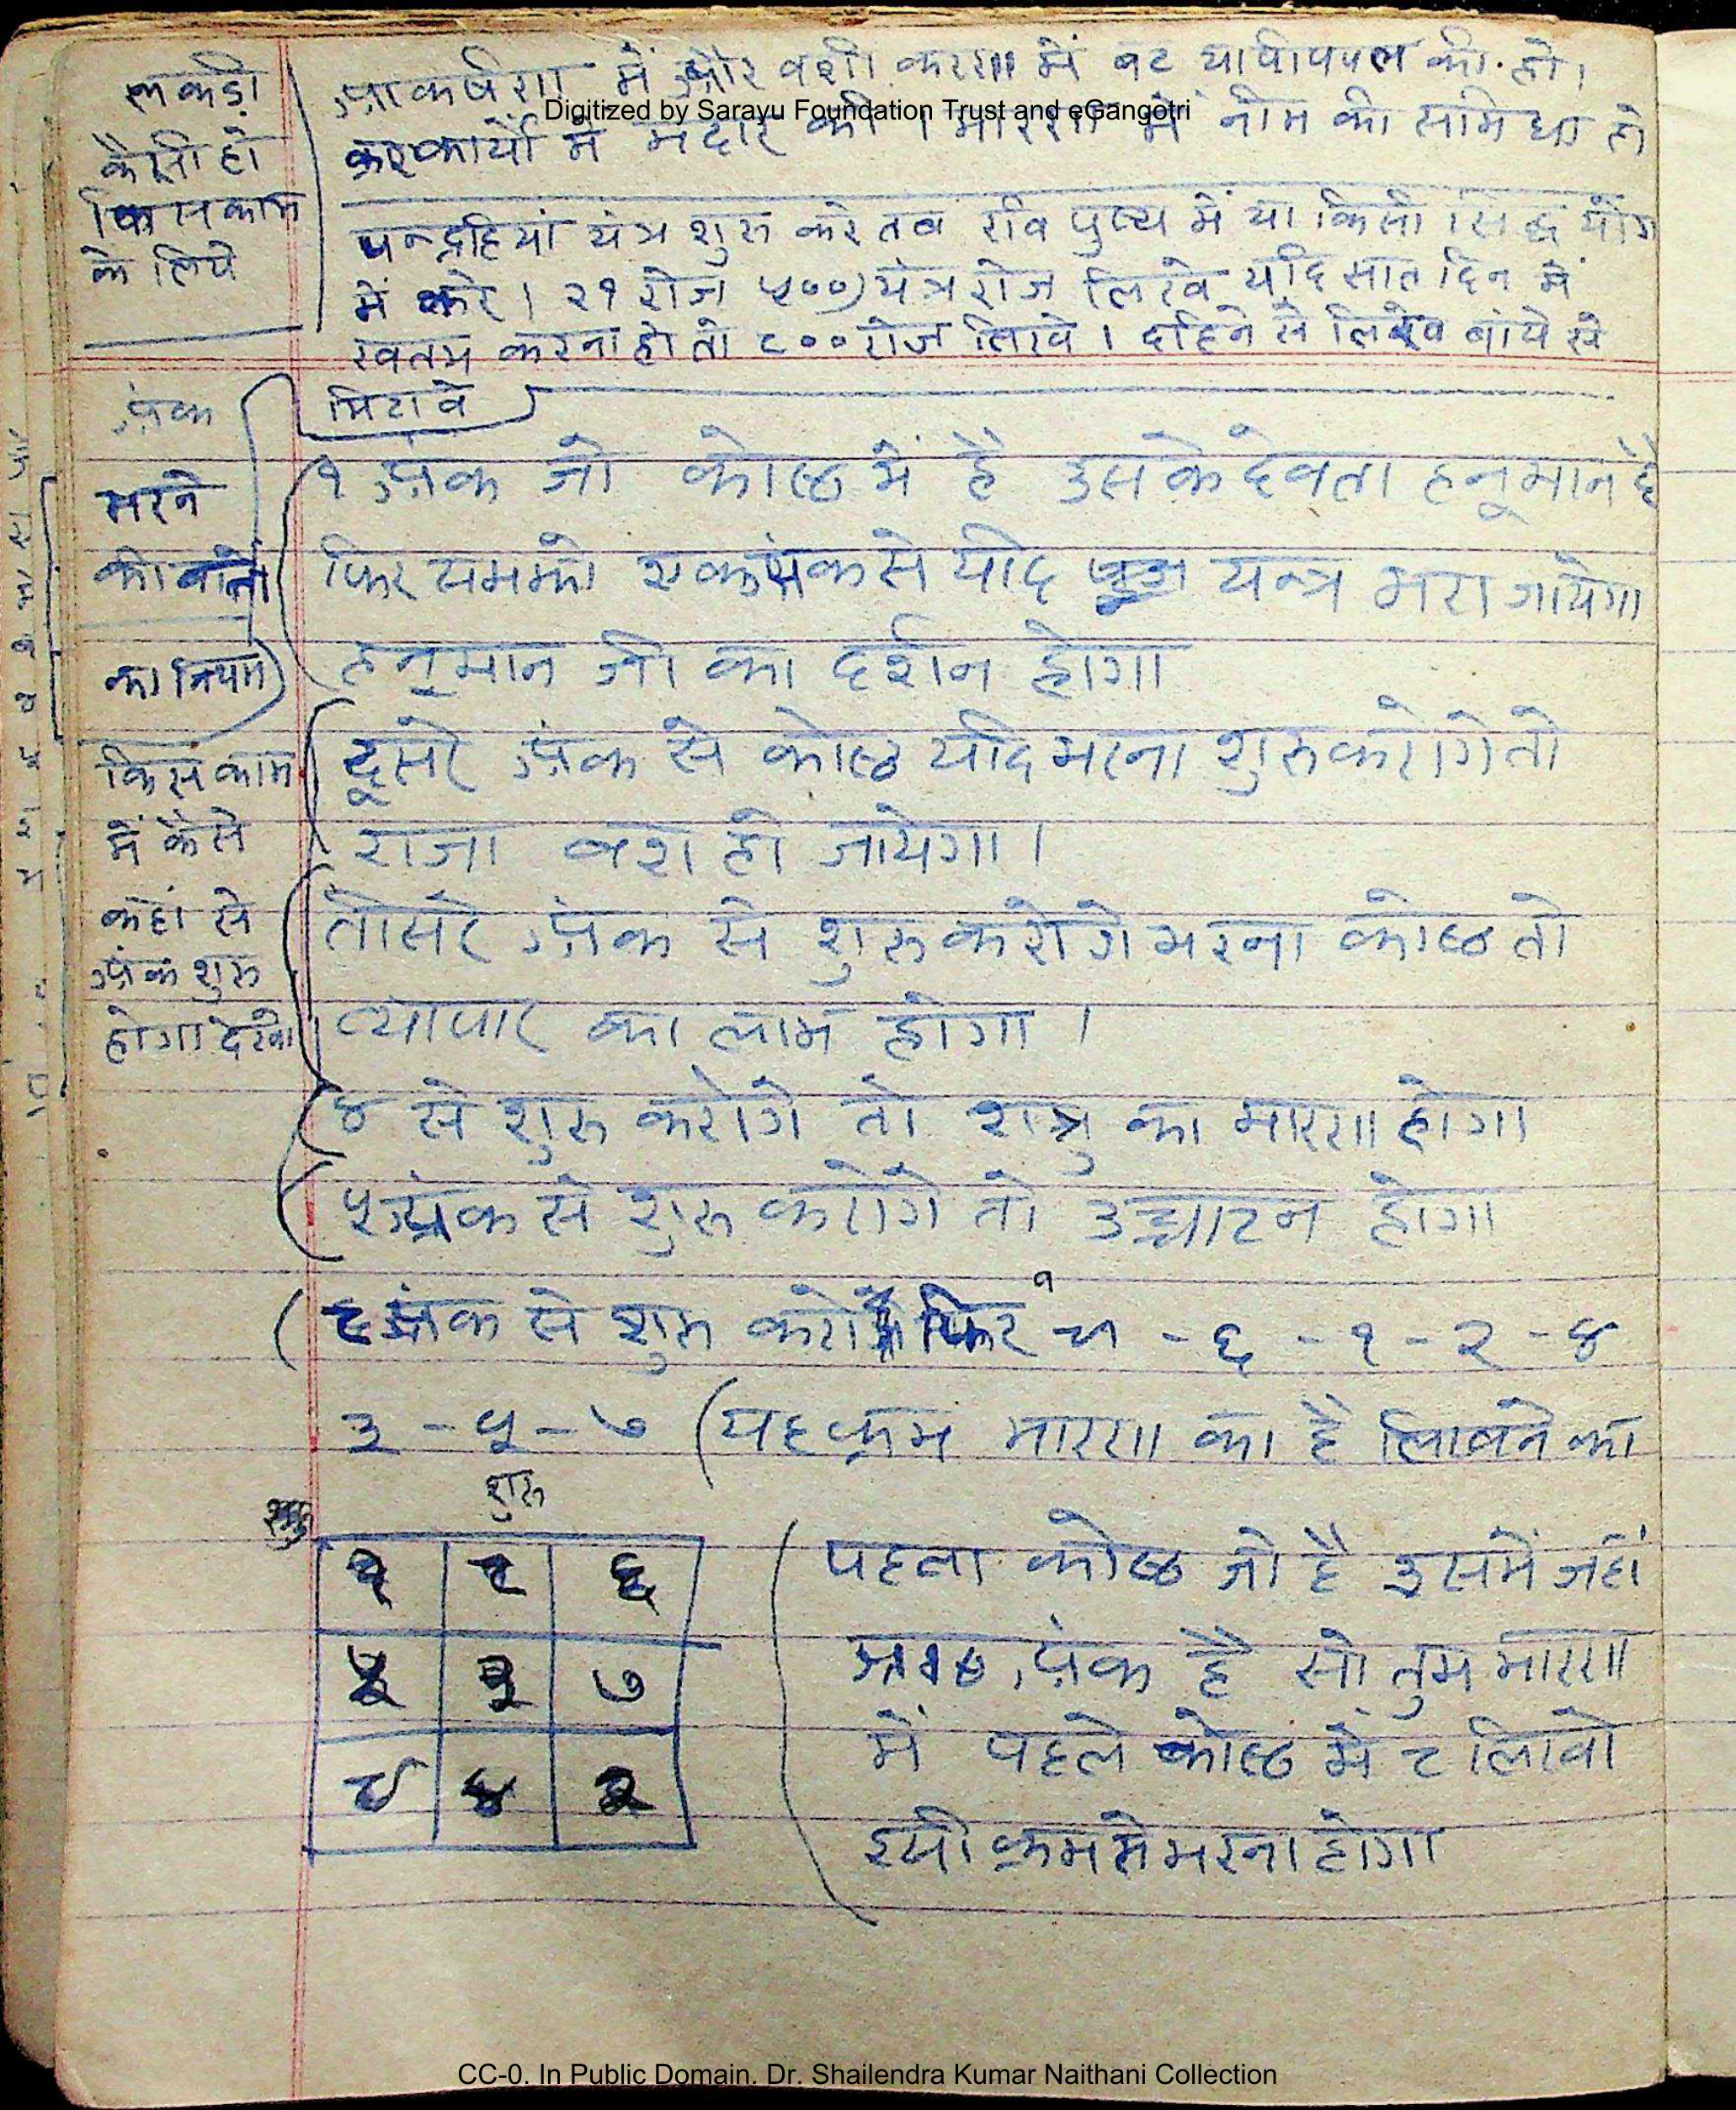 लकडी
कैसी हो
किस काम
के लिये
आकर्षण में और वशी करण में बट या पीपल की हो।
Digitized by Sarayu Foundation Trust and eGangotri
कार्यों में मदार की। मारण में नीम की समिधा हो
पन्द्रहियां यंत्र शुरु करे तब रवि पुष्य में या किसी सिद्ध योग
में करे। २१ रोज ५००) यंत्र रोज लिखे यदि सात दिन में
खतम करना हो तो ८०० रोज लिखे। दहिने से लिखे बांये से
मिटावे
अंक
भरने
का नियम
किस काम
में कैसे
कहां से
अंक शुरु
होगा देखो
१ अंक जो कोष्ठ में है उसके देवता हनूमान है
फिर एक अंक से यदि यन्त्र भरा जायेगा
हनूमान जी का दर्शन होगा
दूसरे अंक से कोष्ठ यदि भरना शुरु करोगे तो
राजा वश हो जायेगा।
तीसरे अंक से शुरु करोगे भरना कोष्ठ तो
व्यापार का लाभ होगा।
४ से शुरु करोगे तो शत्रु का मारण होगा
५ अंक से शुरु करोगे तो उच्चाटन होगा
अंक से शुरु करो फिर - ६ - १ - २ - ४
३ - ५ - ७ (यह क्रम मारण का है लिखने का
शुरु
६
७
४
पहला कोष्ठ जो है उसमें जहां
अंक है सो तुम मारण
में पहले कोष्ठ में ८ लिखो
इसी क्रम से भरना होगा
CC-0. In Public Domain. Dr. Shailendra Kumar Naithani Collection